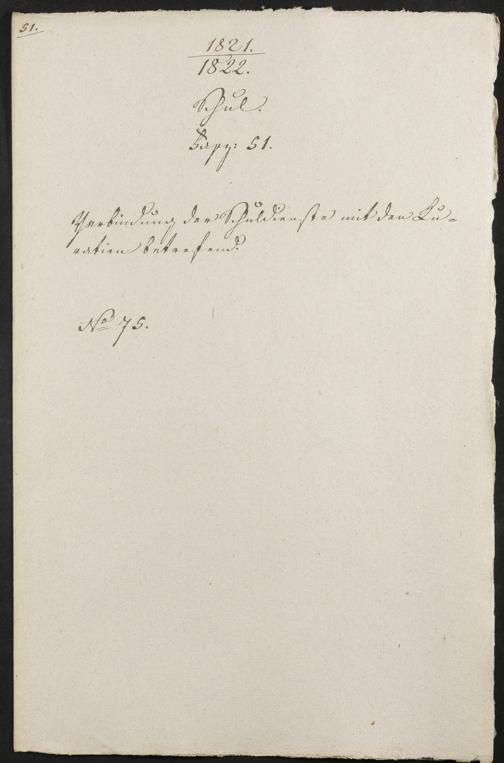 51.
1821.
1822.
Schul.
Fasz: 51.
Verbindung der Schuldienste mit den Ku-
ratien betreffend.
No 75.